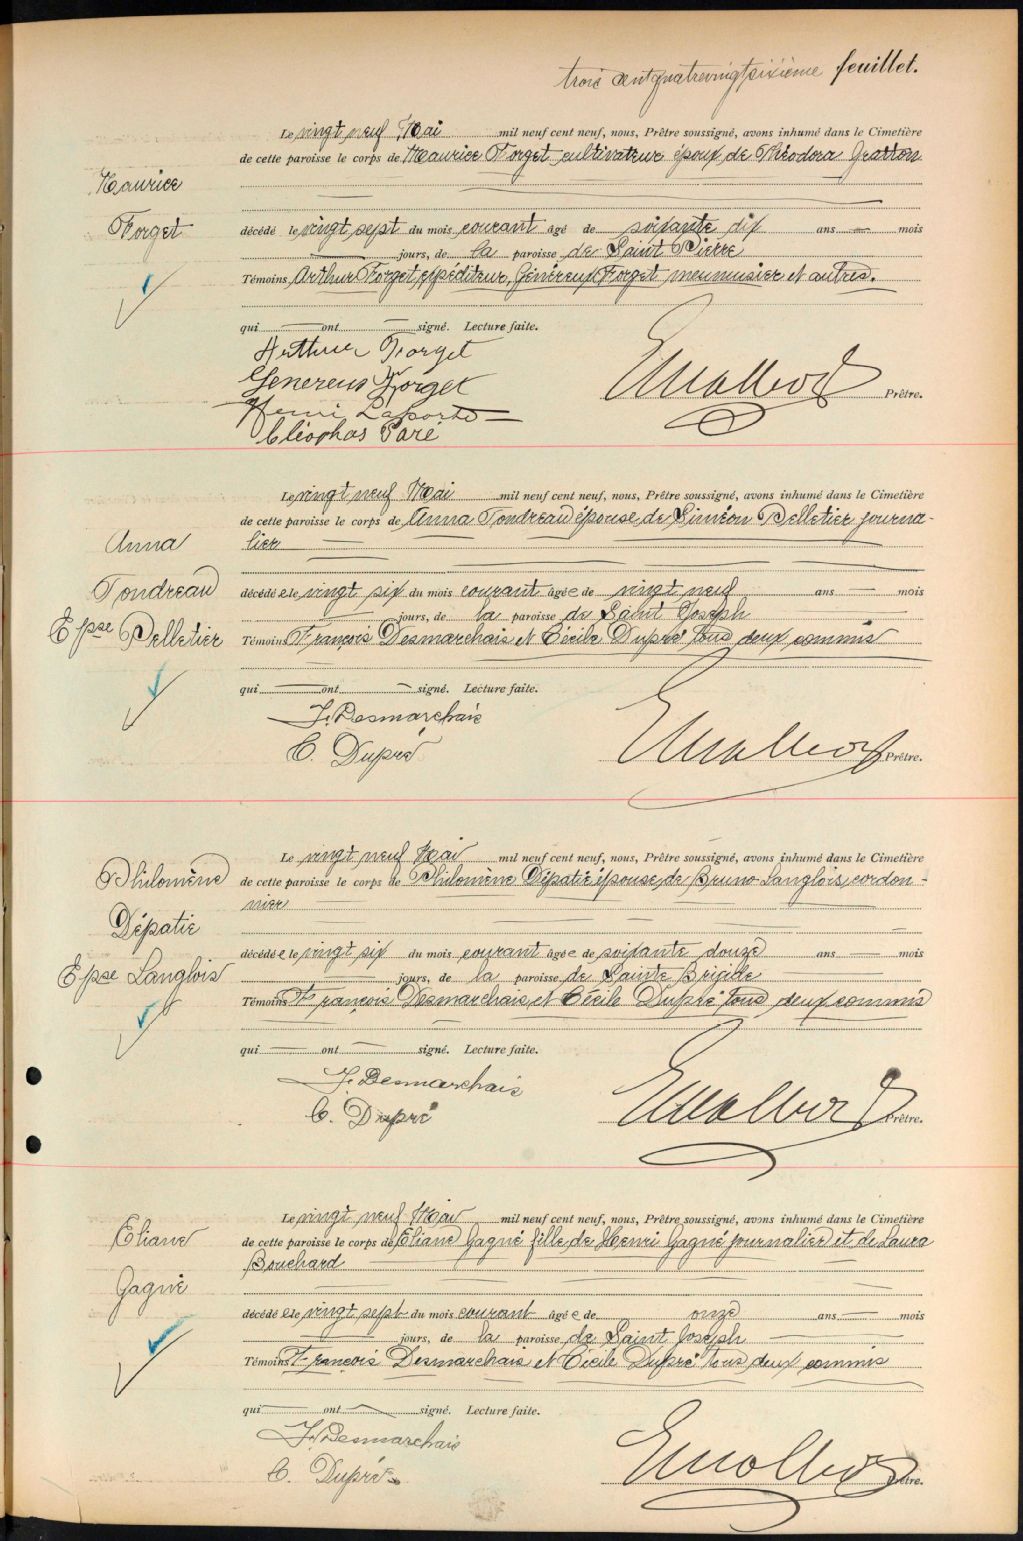 trois cent quatrevingt sixième feuillet.
Le vingt neuf Mai mil neuf cent neuf, nous, Prêtre soussigné, avons inhumé dans le Cimetière
de cette paroisse le corps de Maurice Forget cultivateur époux de Théodora Gratton
Maurice
Forget
décédé le vingt sept du mois courant âgé de soixante dix ans — mois
— jours, de la paroisse de Saint Pierre
Témoins Arthur Forget, expéditeur, Généreux Forget menuisier et autres.
qui — ont — signé. Lecture faite.
Arthur Forget
Genereus Forget
Henri Laporte
Cléophas Paré
Prêtre.
Le vingt neuf Mai mil neuf cent neuf, nous, Prêtre soussigné, avons inhumé dans le Cimetière
de cette paroisse le corps de Anna Tondreau épouse de Siméon Pelletier journa-
lier
Anna
Tondreau
Epse Pelletier
décédée le vingt six du mois courant âgée de vingt neuf ans — mois
— jours, de la paroisse de Saint Joseph
Témoins François Desmarchais et Cécile Dupré tous deux commis
qui — ont — signé. Lecture faite.
F. Desmarchais
C. Dupré
Prêtre.
Le vingt neuf Mai mil neuf cent neuf, nous, Prêtre soussigné, avons inhumé dans le Cimetière
de cette paroisse le corps de Philomène Dépatie épouse de Bruno Langlois, cordon-
nier
Philomène
Dépatie
Epse Langlois
décédée le vingt six du mois courant âgée de soixante douze ans — mois
— jours, de la paroisse de Sainte Brigide
Témoins François Desmarchais et Cécile Dupré tous deux commis
qui — ont — signé. Lecture faite.
F. Desmarchais
C. Dupré
Prêtre.
Le vingt neuf Mai mil neuf cent neuf, nous, Prêtre soussigné, avons inhumé dans le Cimetière
de cette paroisse le corps de Eliane Gagné fille de Henri Gagné journalier et de Laura
Bouchard
Eliane
Gagné
décédée le vingt sept du mois courant âgée de onze ans — mois
— jours, de la paroisse de Saint Joseph
Témoins François Desmarchais et Cécile Dupré tous deux commis
qui — ont — signé. Lecture faite.
F. Desmarchais
C. Dupré
Prêtre.